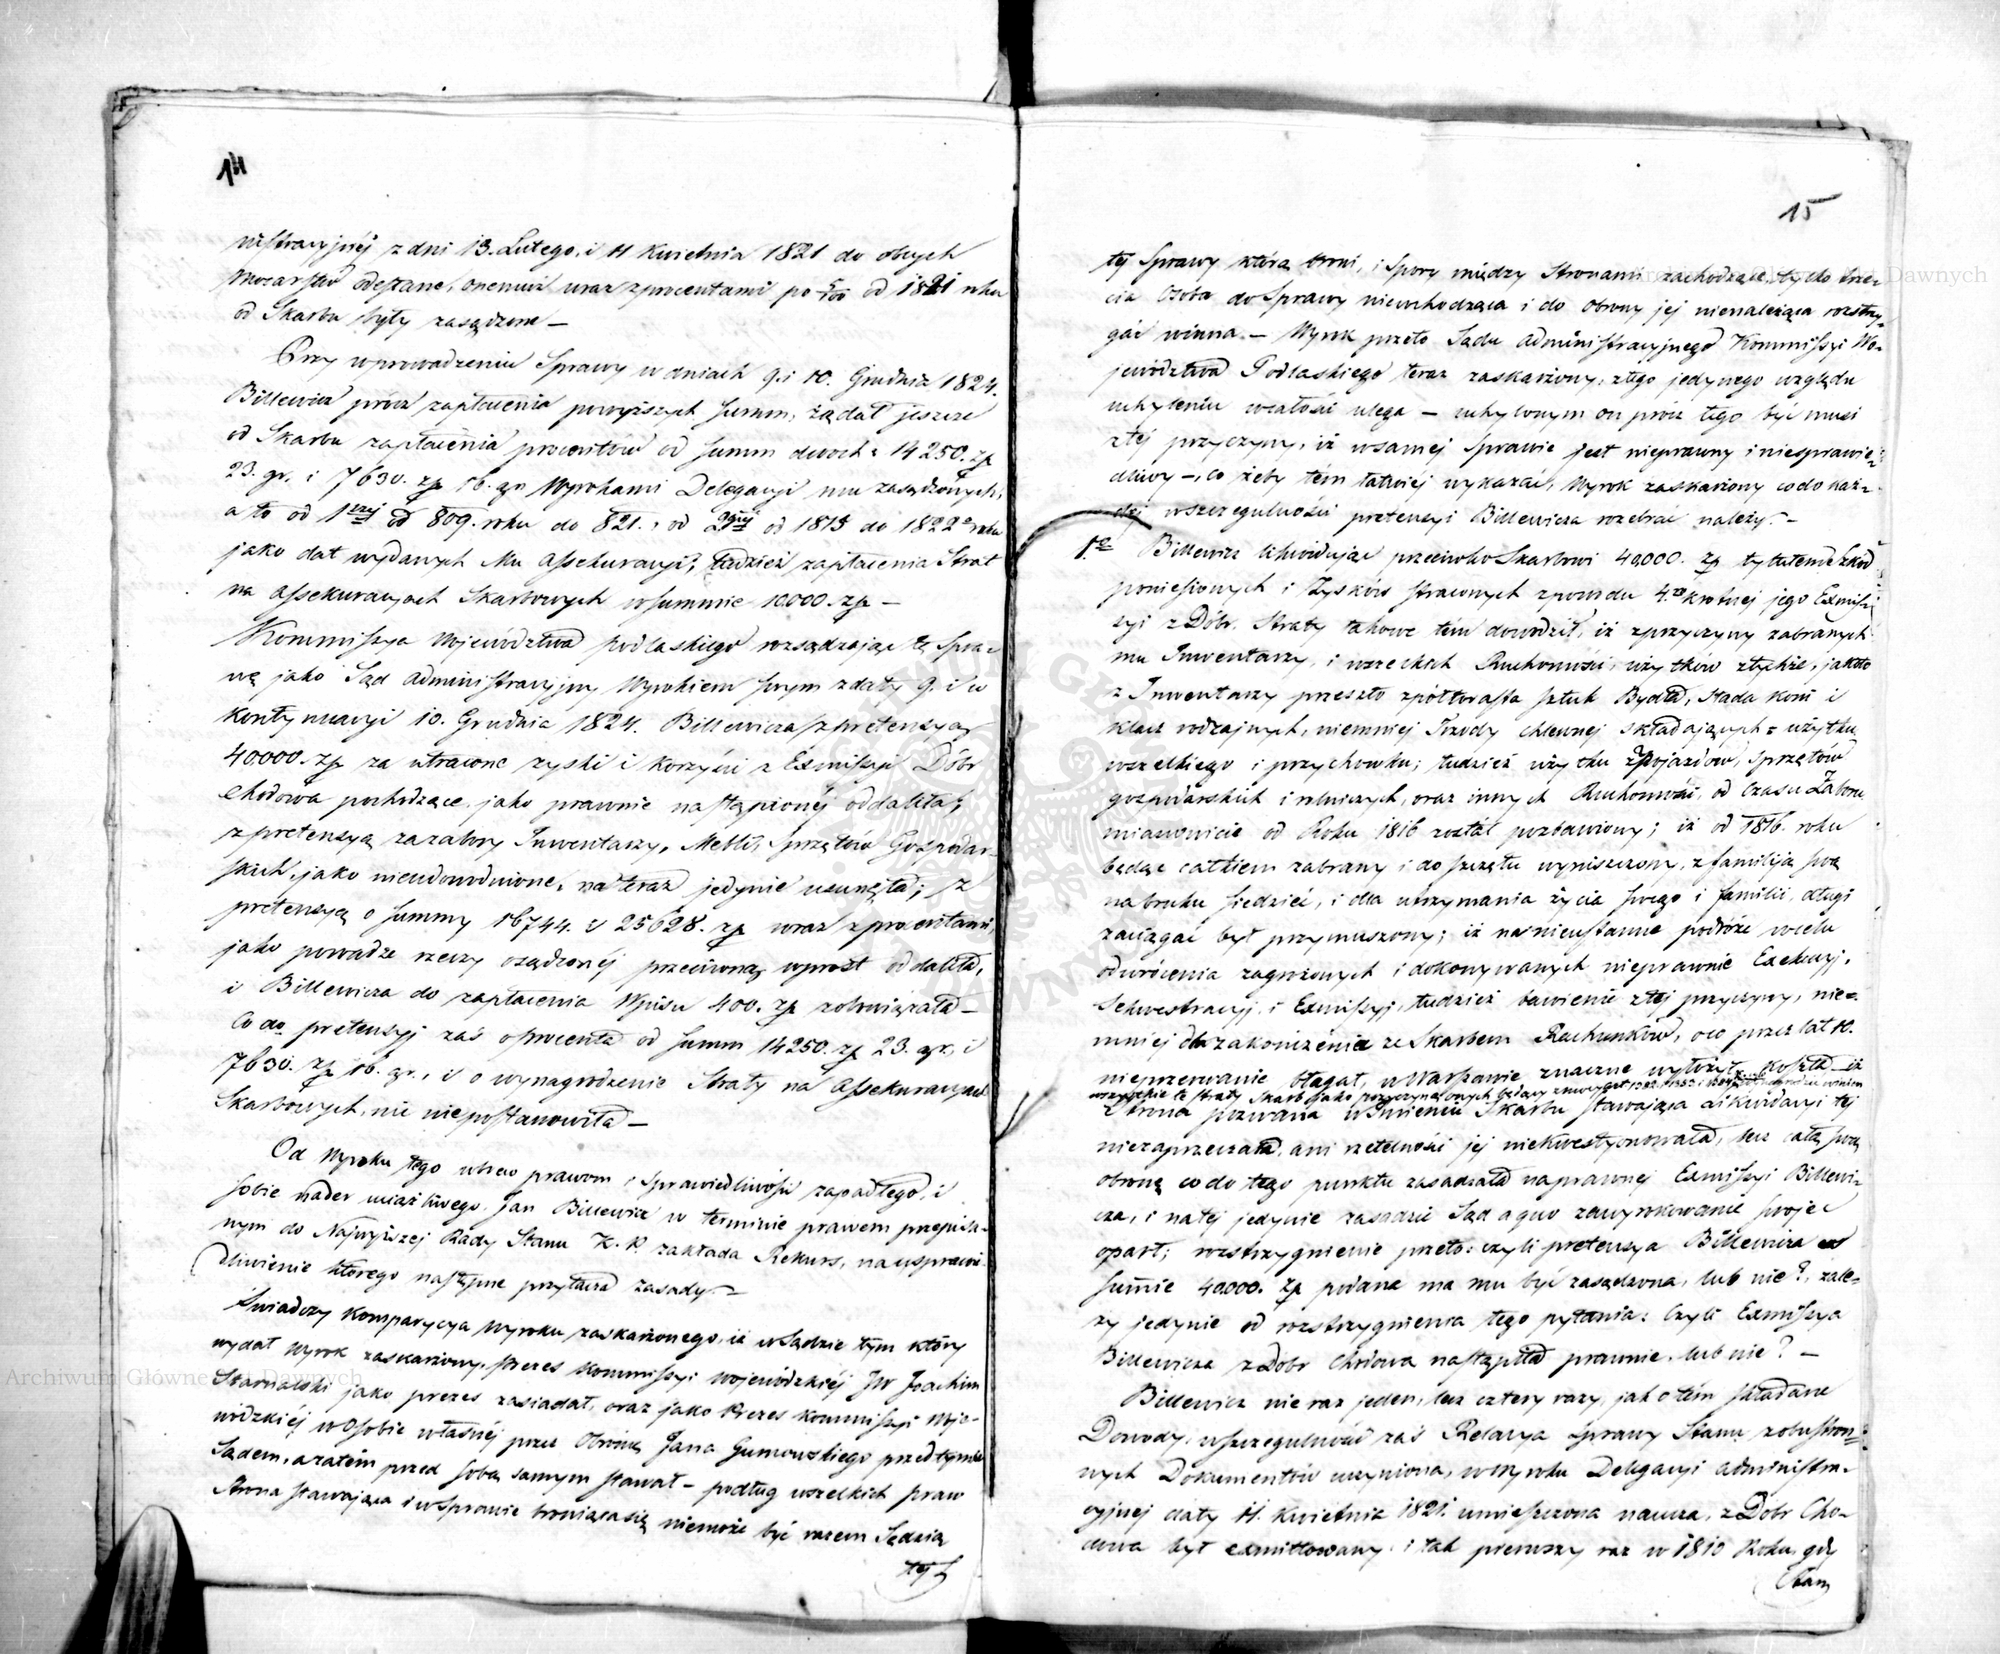 14
nistracyjnéj z dni 13. Lutego, i 11 Kwietnia 1821 do obcych
Mocarstw odesłane, onemuż wraz z procentami po 5/100 od 1821 roku
od Skarbu były zasądzone —
Przy wprowadzeniu Sprawy w dniach 9. i 10. Grudnia 1824.
Billewicz prócz zapłacenia powyższych summ, żądał jeszcze
od Skarbu zapłacenia procentów od summ dwoch: 14250. zp
23. gr. i 7630. zp 16. gr. Wyrokami Delegacyi mu zasądzonych,
a to od 1szej od 809. roku do 821., od 2giej od 1815 do 1822o roku
jako dat wydanych Mu Assekuracyi, tudzież zapłacenia Strat
na Assekuracyach Skarbowych w summie 10000. zp —
Kommissya Województwa Podlaskiego rozsądzając tę Spra-
wę jako Sąd Administracyjny Wyrokiem swym z daty 9. i w
kontynuacyi 10. Grudnia 1824. Billewicza z pretensyą
40000. zp za utracone zyski i korzyści z Exmissyi Dóbr
Chodowa pochodzące, jako prawnie nastąpionéj oddaliła;
z pretensyą za zabory Inwentarzy, Mebli, Sprzętów Gospodar-
skich, jako nieudowodnione, na teraz jedynie usunęła; z
pretensyą o summy 16744. i 25628. zp wraz z procentami,
jako powadze rzeczy osądzonéj przeciwną wprost oddaliła,
i Billewicza do zapłacenia Wpisu 400. zp zobowiązała —
Co do pretensyj zaś o procenta od summ 14250. zp 23. gr. i
7630. zp 16. gr., i o wynagrodzenie Straty na Assekuracyach
Skarbowych, nic niepostanowiła —
Od Wyroku tego wbrew prawom i Sprawiedliwości zapadłego, i
sobie nader uciążliwego, Jan Billewicz w terminie prawem przepisa-
nym do Najwyższej Rady Stanu K. P. zakłada Rekurs, na usprawie-
dliwienie którego następne przytacza zasady. —
Świadczy Komparycya Wyroku zaskarżonego, iż w Sądzie tym który
wydał Wyrok zaskarżony, Prezes Kommissyi Wojewódzkiéj JW Joachim
jako prezes zasiadał, oraz jako Prezes Kommissyi Woje-
wódzkiéj w Osobie własnéj przez Obrońcę Jana Gumowskiego przed tymże
Sądem, a zatém przed sobą samym stawał — podług wszelkich praw
Strona stawająca i w Sprawie broniąca się niemoże być razem Sędzią
téj S
15
téj Sprawy którą broni, i Spory między Stronami zachodzące, tylko trze-
cia Osoba do Sprawy niewchodząca i do obrony jej nienależąca rozstrzy-
gać winna. — Wyrok przeto Sądu Administracyjnego Kommissyi Wo-
jewództwa Podlaskiego teraz zaskarżony, z tego jedynego względu
uchyleniu w całości ulega — uchylonym on prócz tego być musi
z téj przyczyny, iż w samej Sprawie jest nieprawny i niesprawie-
dliwy —, co żeby tém łatwiéj wykazać, Wyrok zaskarżony co do każ-
déj w szczególności pretensyi Billewicza rozebrać należy. —
1o Billewicz likwidując przeciwko Skarbowi 40,000. zp tytułem Szkód
poniesionych i Zysków straconych z powodu 4ro krotnej jego Exmiss-
syi z Dóbr, Straty takowe tém dowodził, iż z przyczyny zabranych
mu Inwentarzy, i wszelkich Ruchomości, użytków z tychże, jakoto
z Inwentarzy przeszło z półtorasta sztuk Bydła, Stada koni i
klacz rodzajnych, niemniej Trzody chlewnej składających = użytku
wszelkiego i przychowku; tudzież użytku z Pojazdów, sprzętów
gospodarskich i rolniczych, oraz innych Ruchomości, od Czasu Zaboru
mianowicie od Roku 1816 został pozbawiony; iż od 1816. roku
będąc całkiem zabrany i do szczętu wyniszczony, z familiją swą
na bruku siedzieć, i dla utrzymania życia swego i familii, długi
zaciągać był przymuszony; iż na nieustanne podróże w celu
odwrócenia zagrożonych i dokonywanych nieprawnie Exekucyj,
Sekwestracyj, i Exmissyj, tudzież bawienie z téj przyczyny, nie-
mniéj dla zakończenia ze Skarbem Rachunków, o co przez lat 10.
nieprzerwanie błagał, w Warszawie znaczne wyłożył koszta — iż
wszystkie te straty Skarb jako przyczyną onych będący z mocy art 1382. 1383. i 1384 nadgrodzić winien
Strona pozwana w Imieniu Skarbu stawająca Likwidacyi téj
niezaprzeczała, ani rzetelności jéj niekwestyonowała, lecz całą swą
obronę co do tego punktu zasadzała na prawnéj Exmissyi Billewi-
cza, i na téj jedynie zasadzie Sąd a quo zawyrokowanie swoje
oparł; rozstrzygnienie przeto: czyli pretensya Billewicza w
summie 40,000. zp podana ma mu być zasądzona, lub nie?, zale-
ży jedynie od rozstrzygnienia tego pytania: Czyli Exmissya
Billewicza z Dobr Chodowa nastąpiła prawnie, lub nie? —
Billewicz nie raz jeden, lecz cztery razy, jak o tém składane
Dowody, w szczególności zaś Relacya Sprawy Stanu z obustron-
nych Dokumentów uczyniona, w Wyroku Delegacyi Administra-
cyjnej daty 11. Kwietnia 1821. umieszczona naucza, z Dobr Cho-
dowa był exmittowany. i tak pierwszy raz w 1810 Roku, gdy